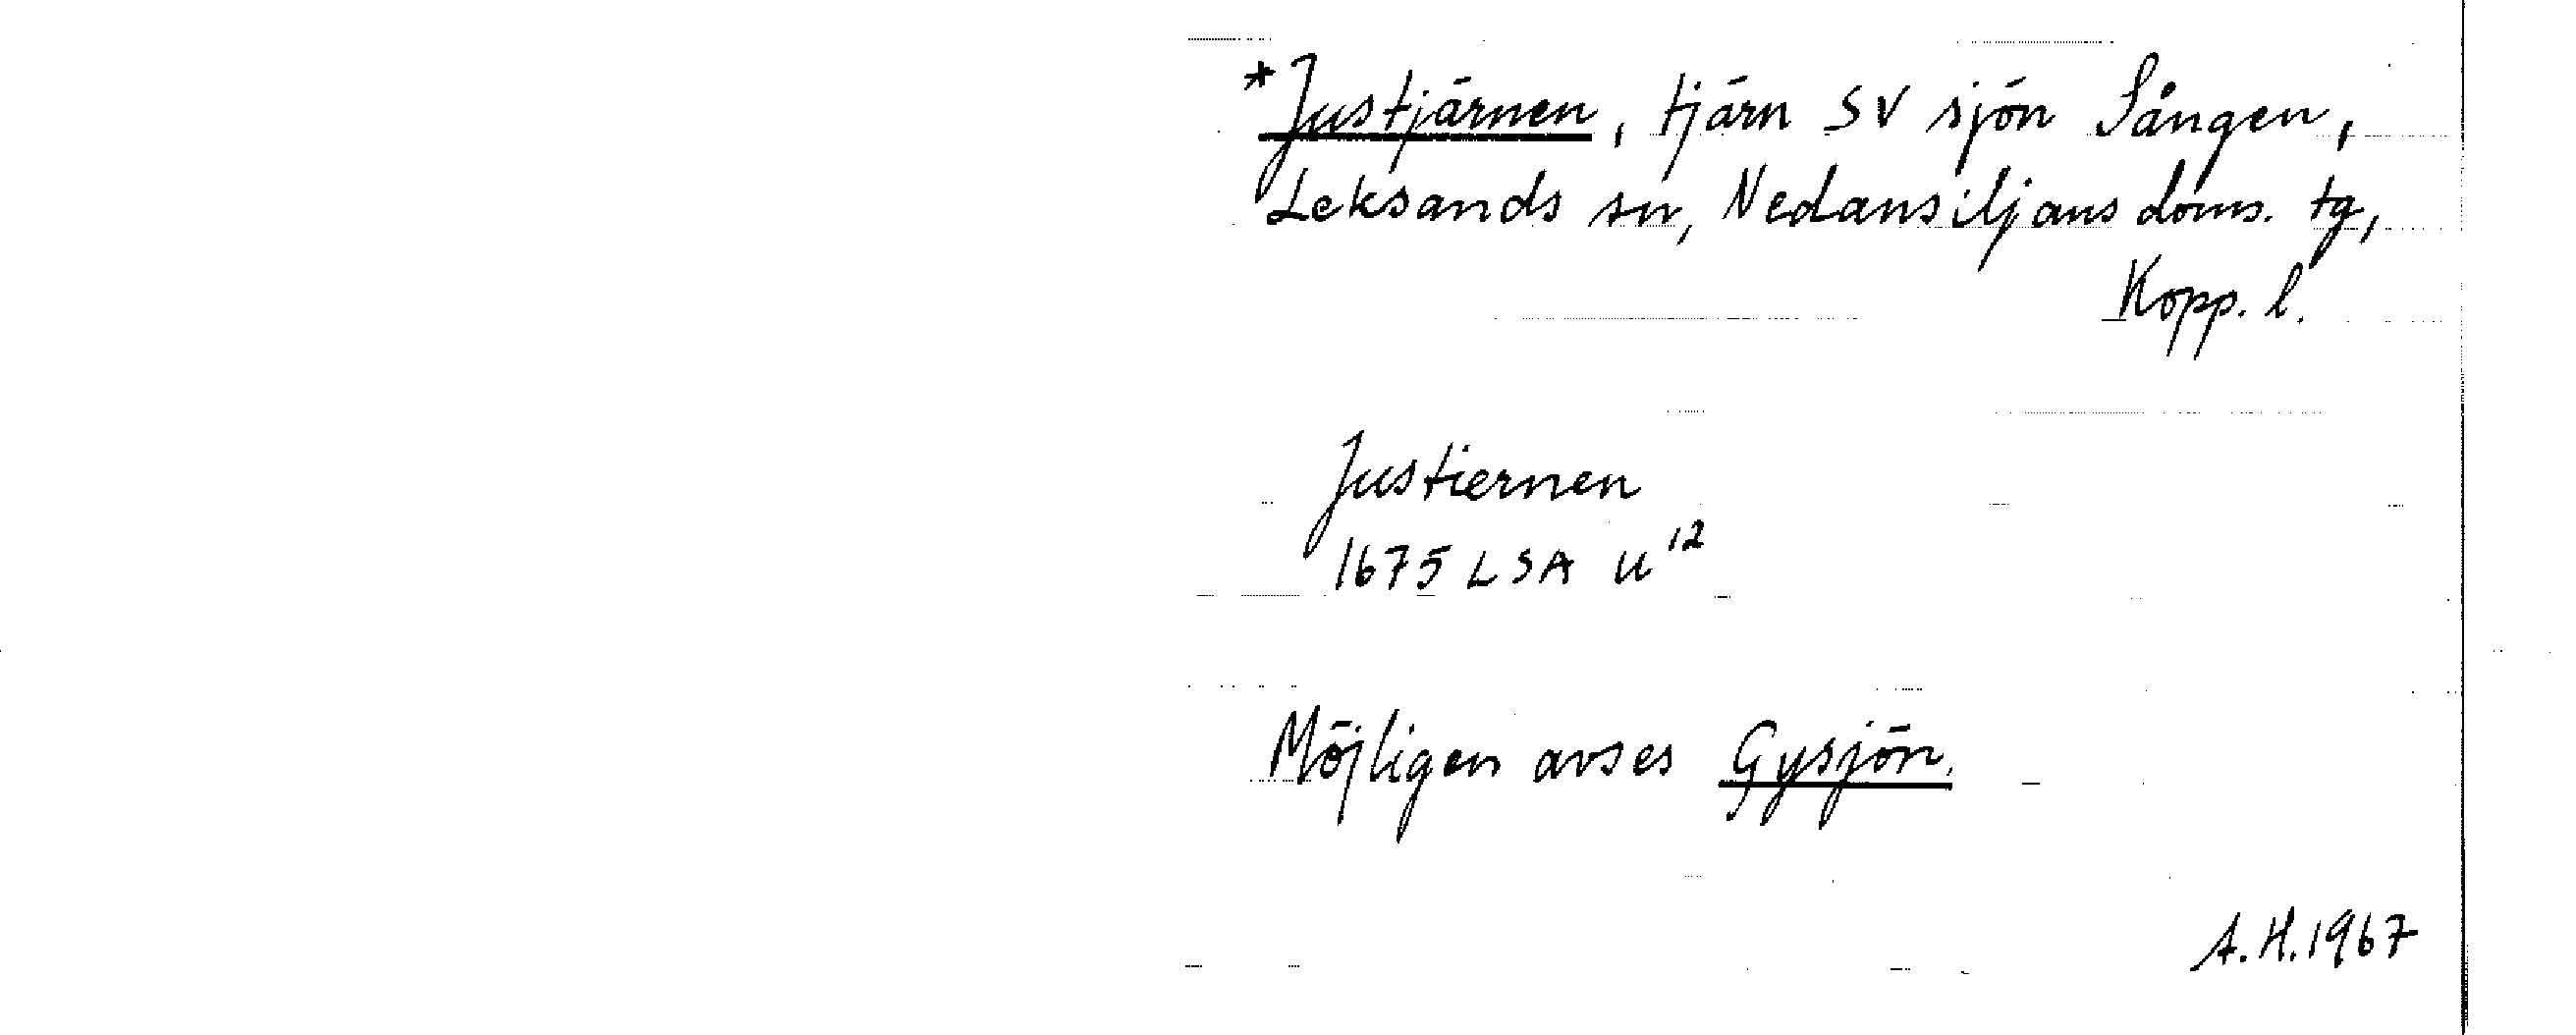 *Justjärnen, tjärn SV sjön Sången,
Leksands sn, Nedansiljans doms. tg,
Kopp. l.
Justiernen
1675 LSA U¹²
Möjligen avses Gysjön.
A.H. 1967